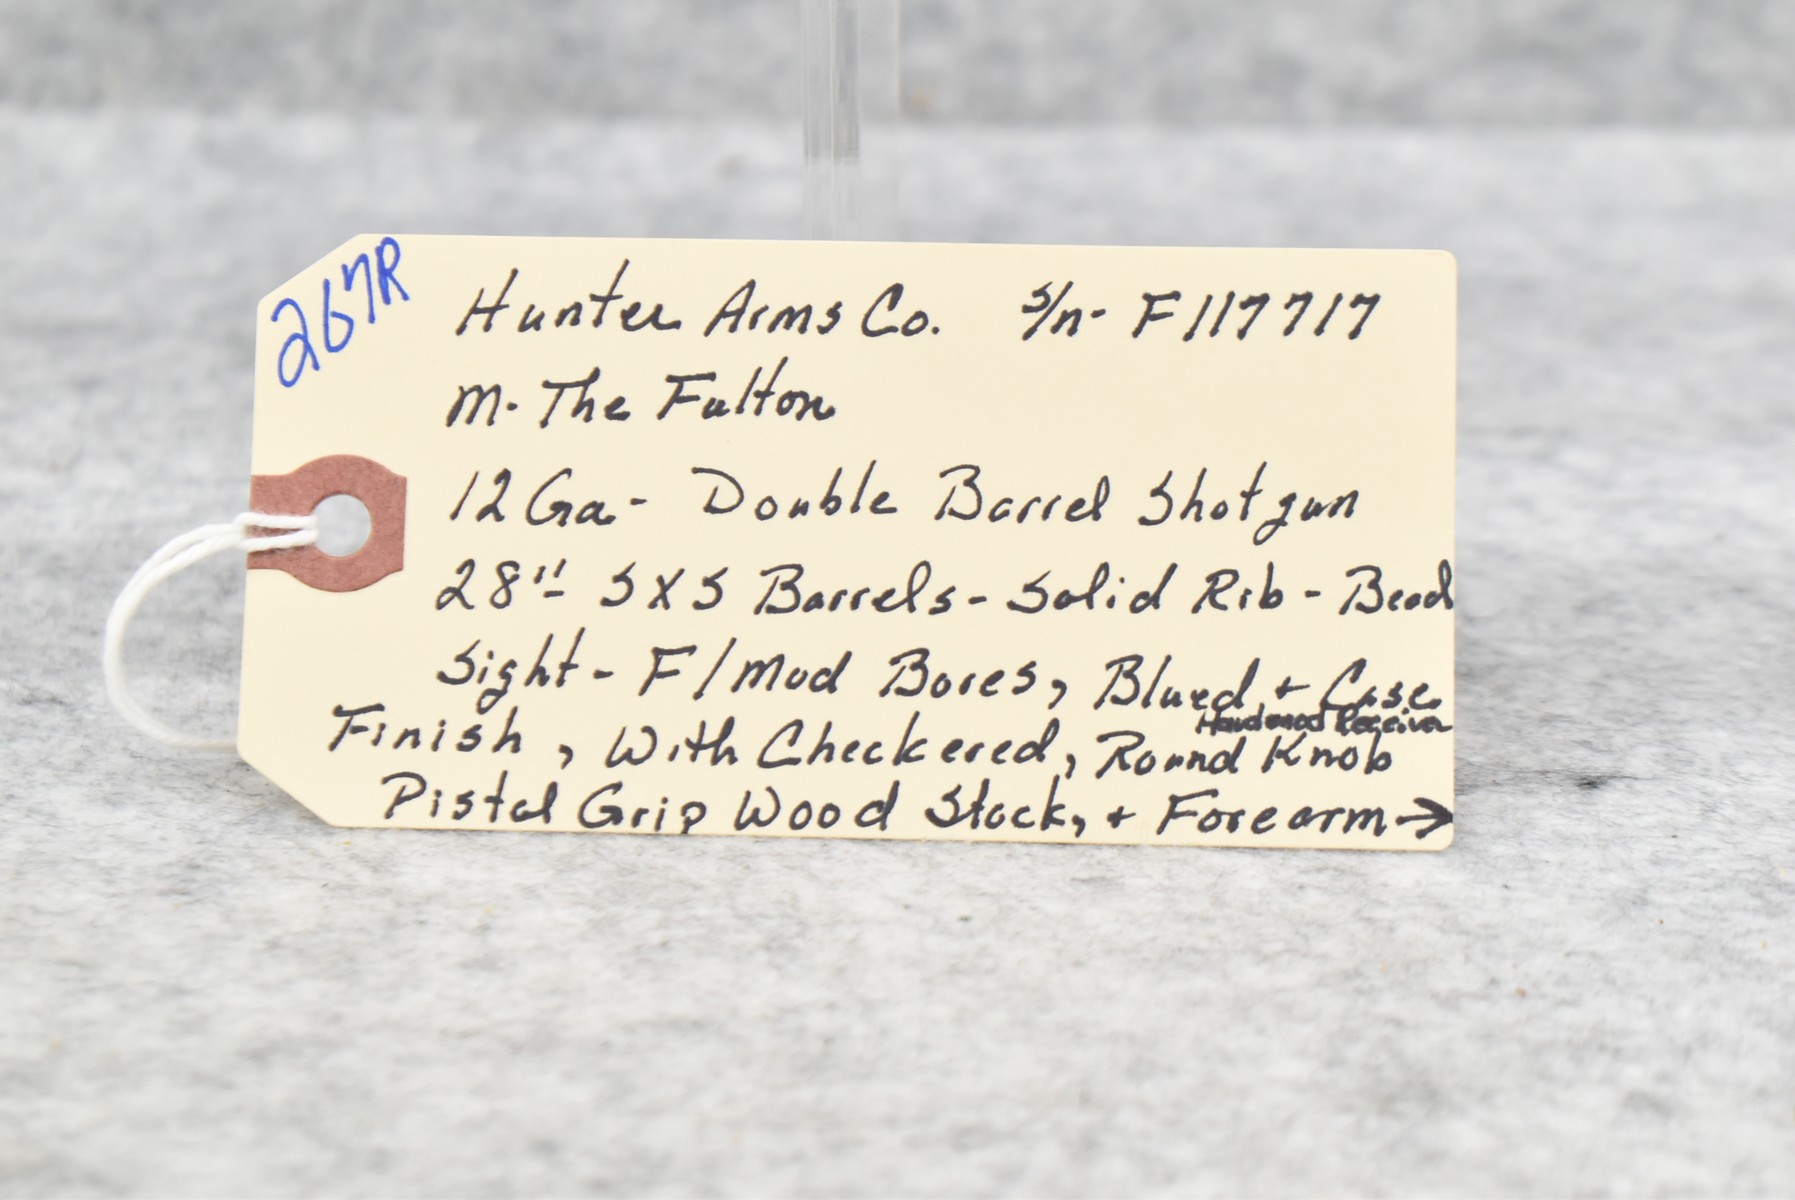 267R
Hunter Arms Co. S/n- F117717
M- The Fulton
12 Ga- Double Barrel Shotgun
28" SXS Barrels - Solid Rib - Bead
Sight - F/Mod Bores, Blued + Case
Hardened Receiver
Finish, With Checkered, Round Knob
Pistol Grip Wood Stock, + Forearm→